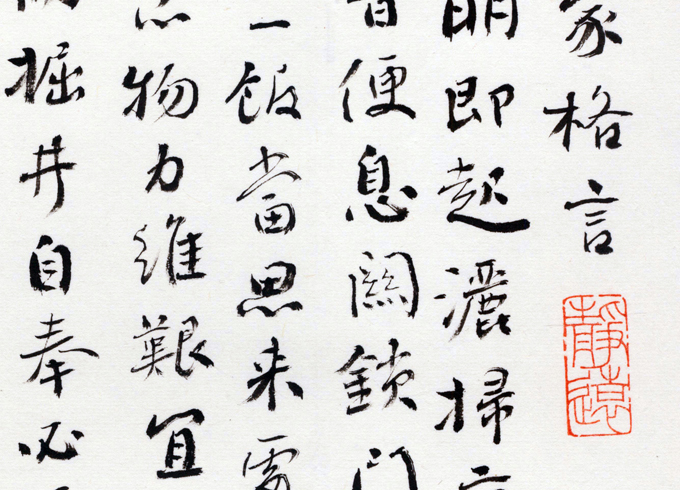 家格言
靜遠
明即起灑掃
昏便息關鎖門
一飯當思来處
念物力維艱宜
掘井自奉必